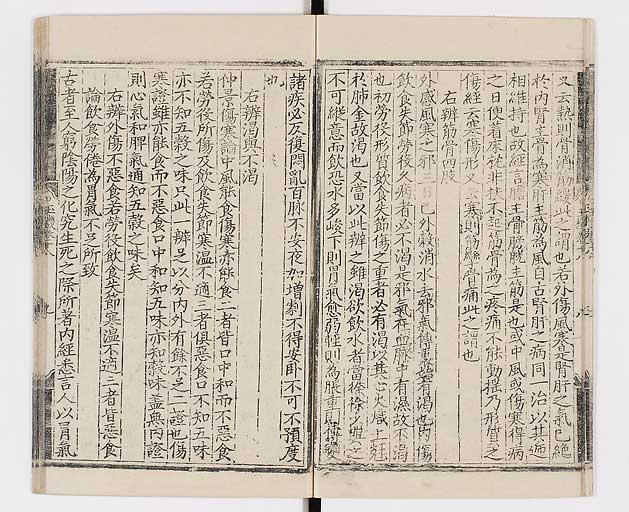 又云熱則骨消筋緩此之謂也若外傷風寒是腎肝之氣已絶
於內腎主骨爲寒肝主筋爲風自古腎肝之病同一治以其遞
相維持也故經言膽主骨膀胱主筋是也或中風或傷寒得病
之日便着床枕非扶不起筋骨爲之疼痛不能動搖乃形質之
傷經云寒傷形又云寒則筋攣骨痛此之謂也
右辨筋骨四肢
外感風寒之邪三日已外穀消水去邪氣傳裏始有渴也內傷
飲食失節勞役久病者必不渴是邪氣在血脉中有濕故不渴
也初勞役形質飲食失節傷之重者必有渴以其心火熾上尅
於肺金故渴也又當以此辨之雖渴欲飲水者當徐徐少與之
不可縱意而飲恐水多峻下則胃氣愈弱輕則爲脹重則傳變
諸疾必反復悶亂百脉不安夜加增劇不得安臥不可不預度
也
右辨渴與不渴
仲景傷寒論中風能食傷寒亦能食二者皆口中和而不惡食
若勞役所傷及飲食失節寒溫不適三者俱惡食口不知五味
亦不知五穀之味只此一辨足以分內外有餘不足二證也傷
寒證雖亦能食而不惡食口中和知五味亦知穀味蓋無內證
則心氣和脾氣通知五穀之味矣
右辨外傷不惡食若勞役飲食失節寒溫不適三者皆惡食
論飲食勞倦爲胃氣不足所致
古者至人窮陰陽之化究生死之際所著內經悉言人以胃氣